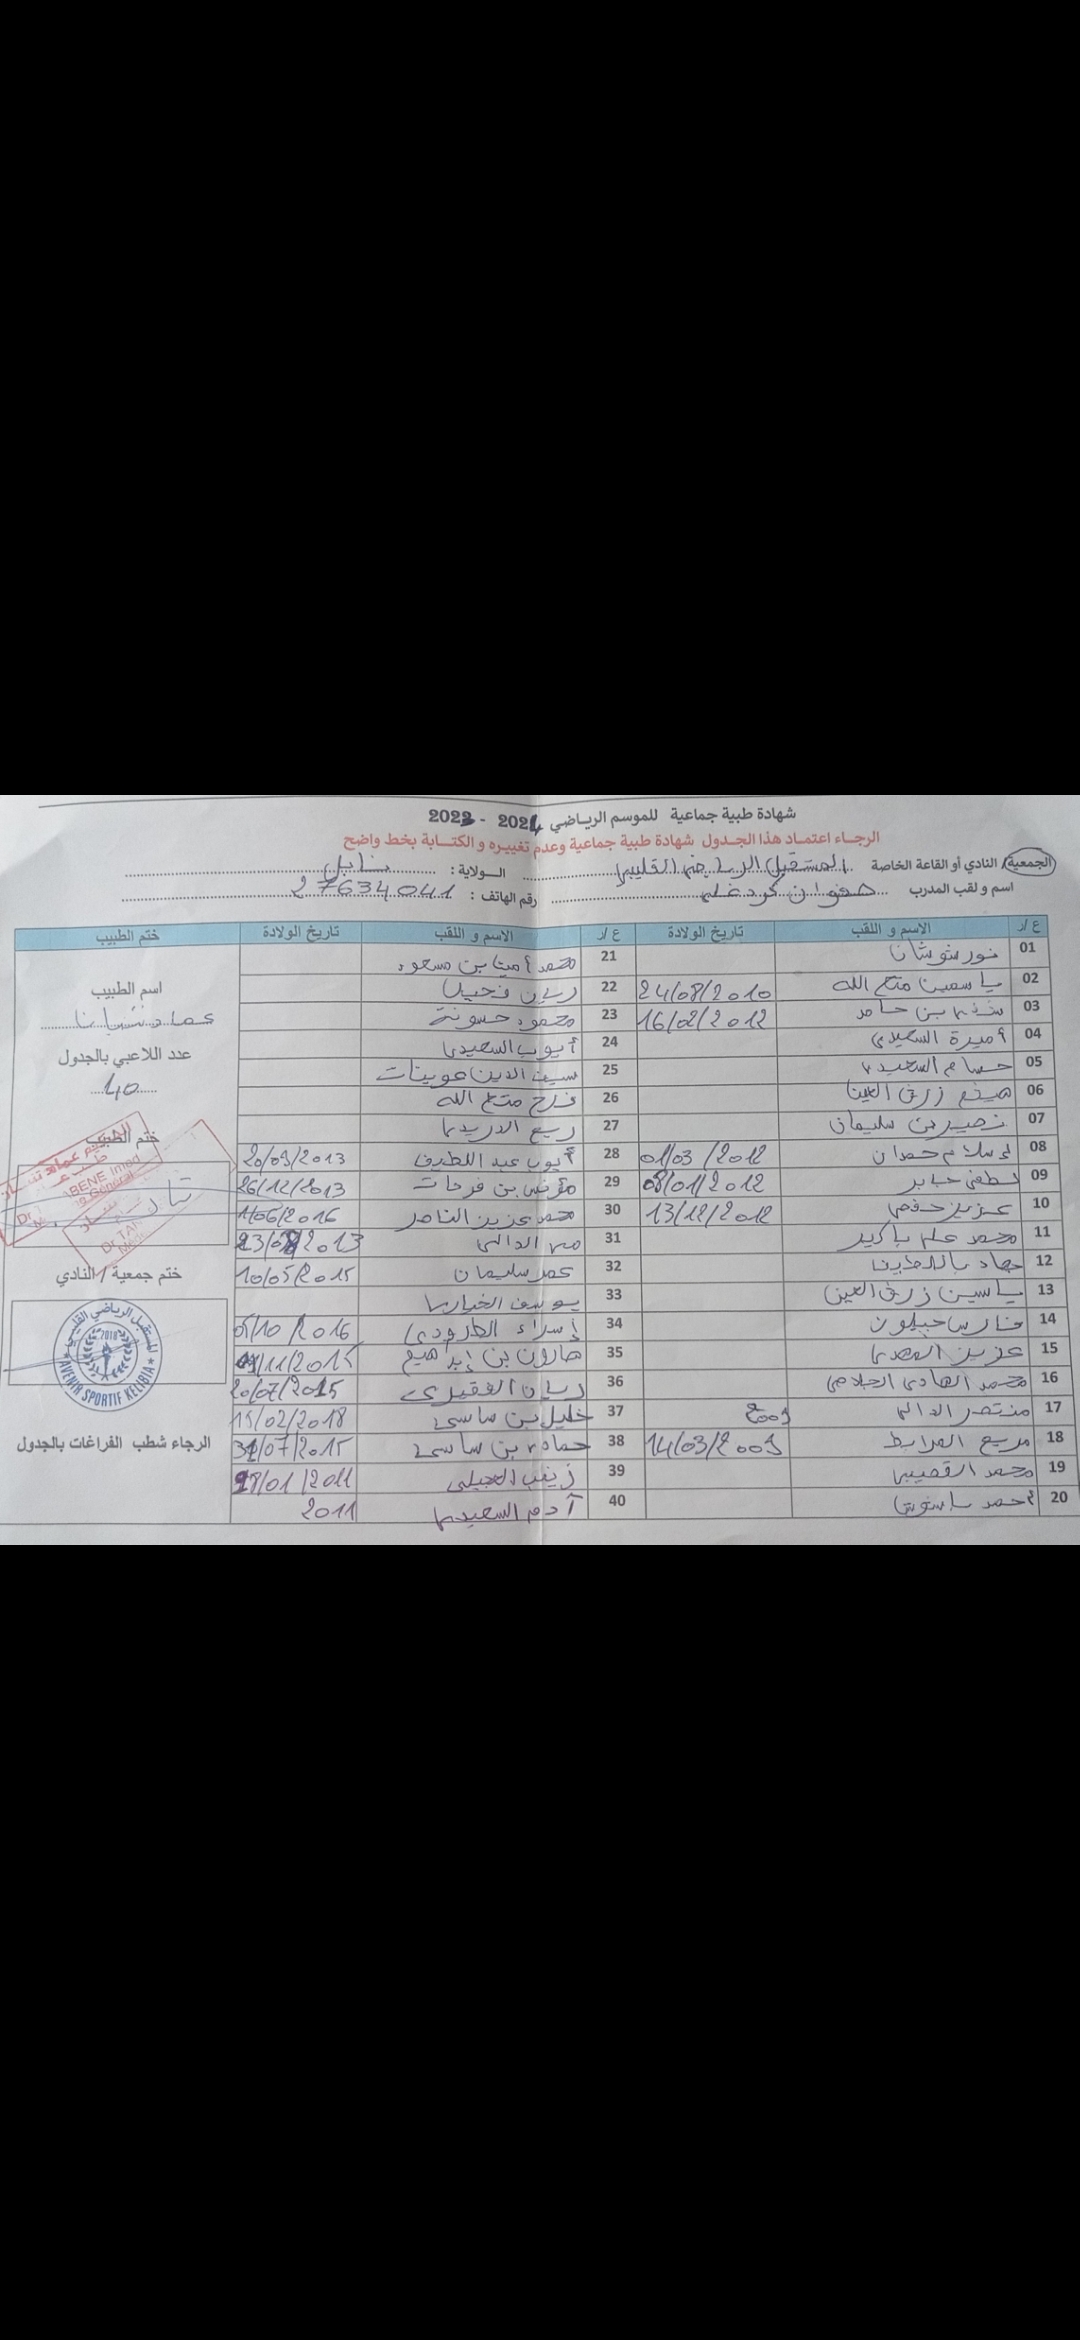 شهادة طبية جماعية للموسم الرياضي 2024 - 2023
الرجاء اعتماد هذا الجدول شهادة طبية جماعية وعدم تغييره و الكتابة بخط واضح
الجمعية/ النادي أو القاعة الخاصة المستقبل الرياضي القليبي الولاية : نابل
اسم و لقب المدرب صفوان كردغلي رقم الهاتف : 27634041
ع /ر الاسم و اللقب تاريخ الولادة ع /ر الاسم و اللقب تاريخ الولادة ختم الطبيب
01 نور شوشان 21 محمد أمين بن مسعود
02 ياسمين متع الله 24/08/2010 22 ريان فحيل اسم الطبيب
03 بن حامد 16/02/2012 23 محمود حسونة عماد
04 أميرة السعيدي 24 أيوب السعيدي عدد اللاعبي بالجدول
05 حسام السعيدي 25 سيف الدين عوينات 40
06 هيثم زرق العين 26 فرح متع الله
07 نصير بن سليمان 27 ربيع الدريدي ختم الطبيب
08 إسلام حمدان 01/03/2012 28 أيوب عبد اللطيف 20/09/2013
09 لطفي جابر 08/01/2012 29 مؤنس بن فرحات 26/12/2013
10 عزيز حفصي 13/12/2012 30 محمد عزيز الناصر 1/06/2016
11 محمد علي باكير 31 الدالي 2013
12 جهاد 32 عمر سليمان 10/05/2015 ختم جمعية / النادي
13 ياسين زرق العين 33 يوسف الخياري
14 فارس حبلون 34 إسراء الطرودي 05/10/2016
15 عزيز المهدي 35 هارون بن إبراهيم 11/2015
16 محمد الهادي الجلاصي 36 ريان الفقيري 20/07/2015
17 منتصر الدالي 2009 37 خليل بن ساسي 15/02/2018
18 مريم المرابط 14/03/2009 38 حمادي بن ساسي 31/07/2015 الرجاء شطب الفراغات بالجدول
19 محمد القصيبي 39 زينب العجيلي /01/2011
20 أحمد 40 آدم السعيدي 2011
المستقبل الرياضي القليبي
2018
AVENIR SPORTIF KELIBIA